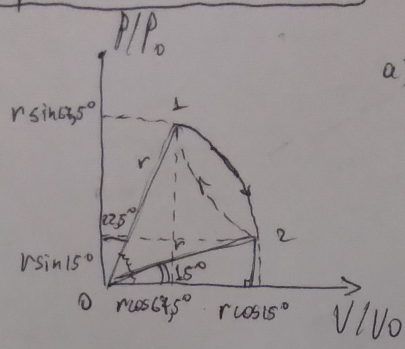 P/P₀
a)
r sin 67,5°
1
r
22,5°
r
2
r sin 15°
15°
0
r cos 67,5°
r cos 15°
V/V₀